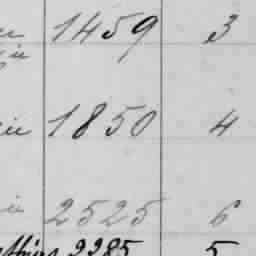 1459 3
1850 4
2525 6
2285 5